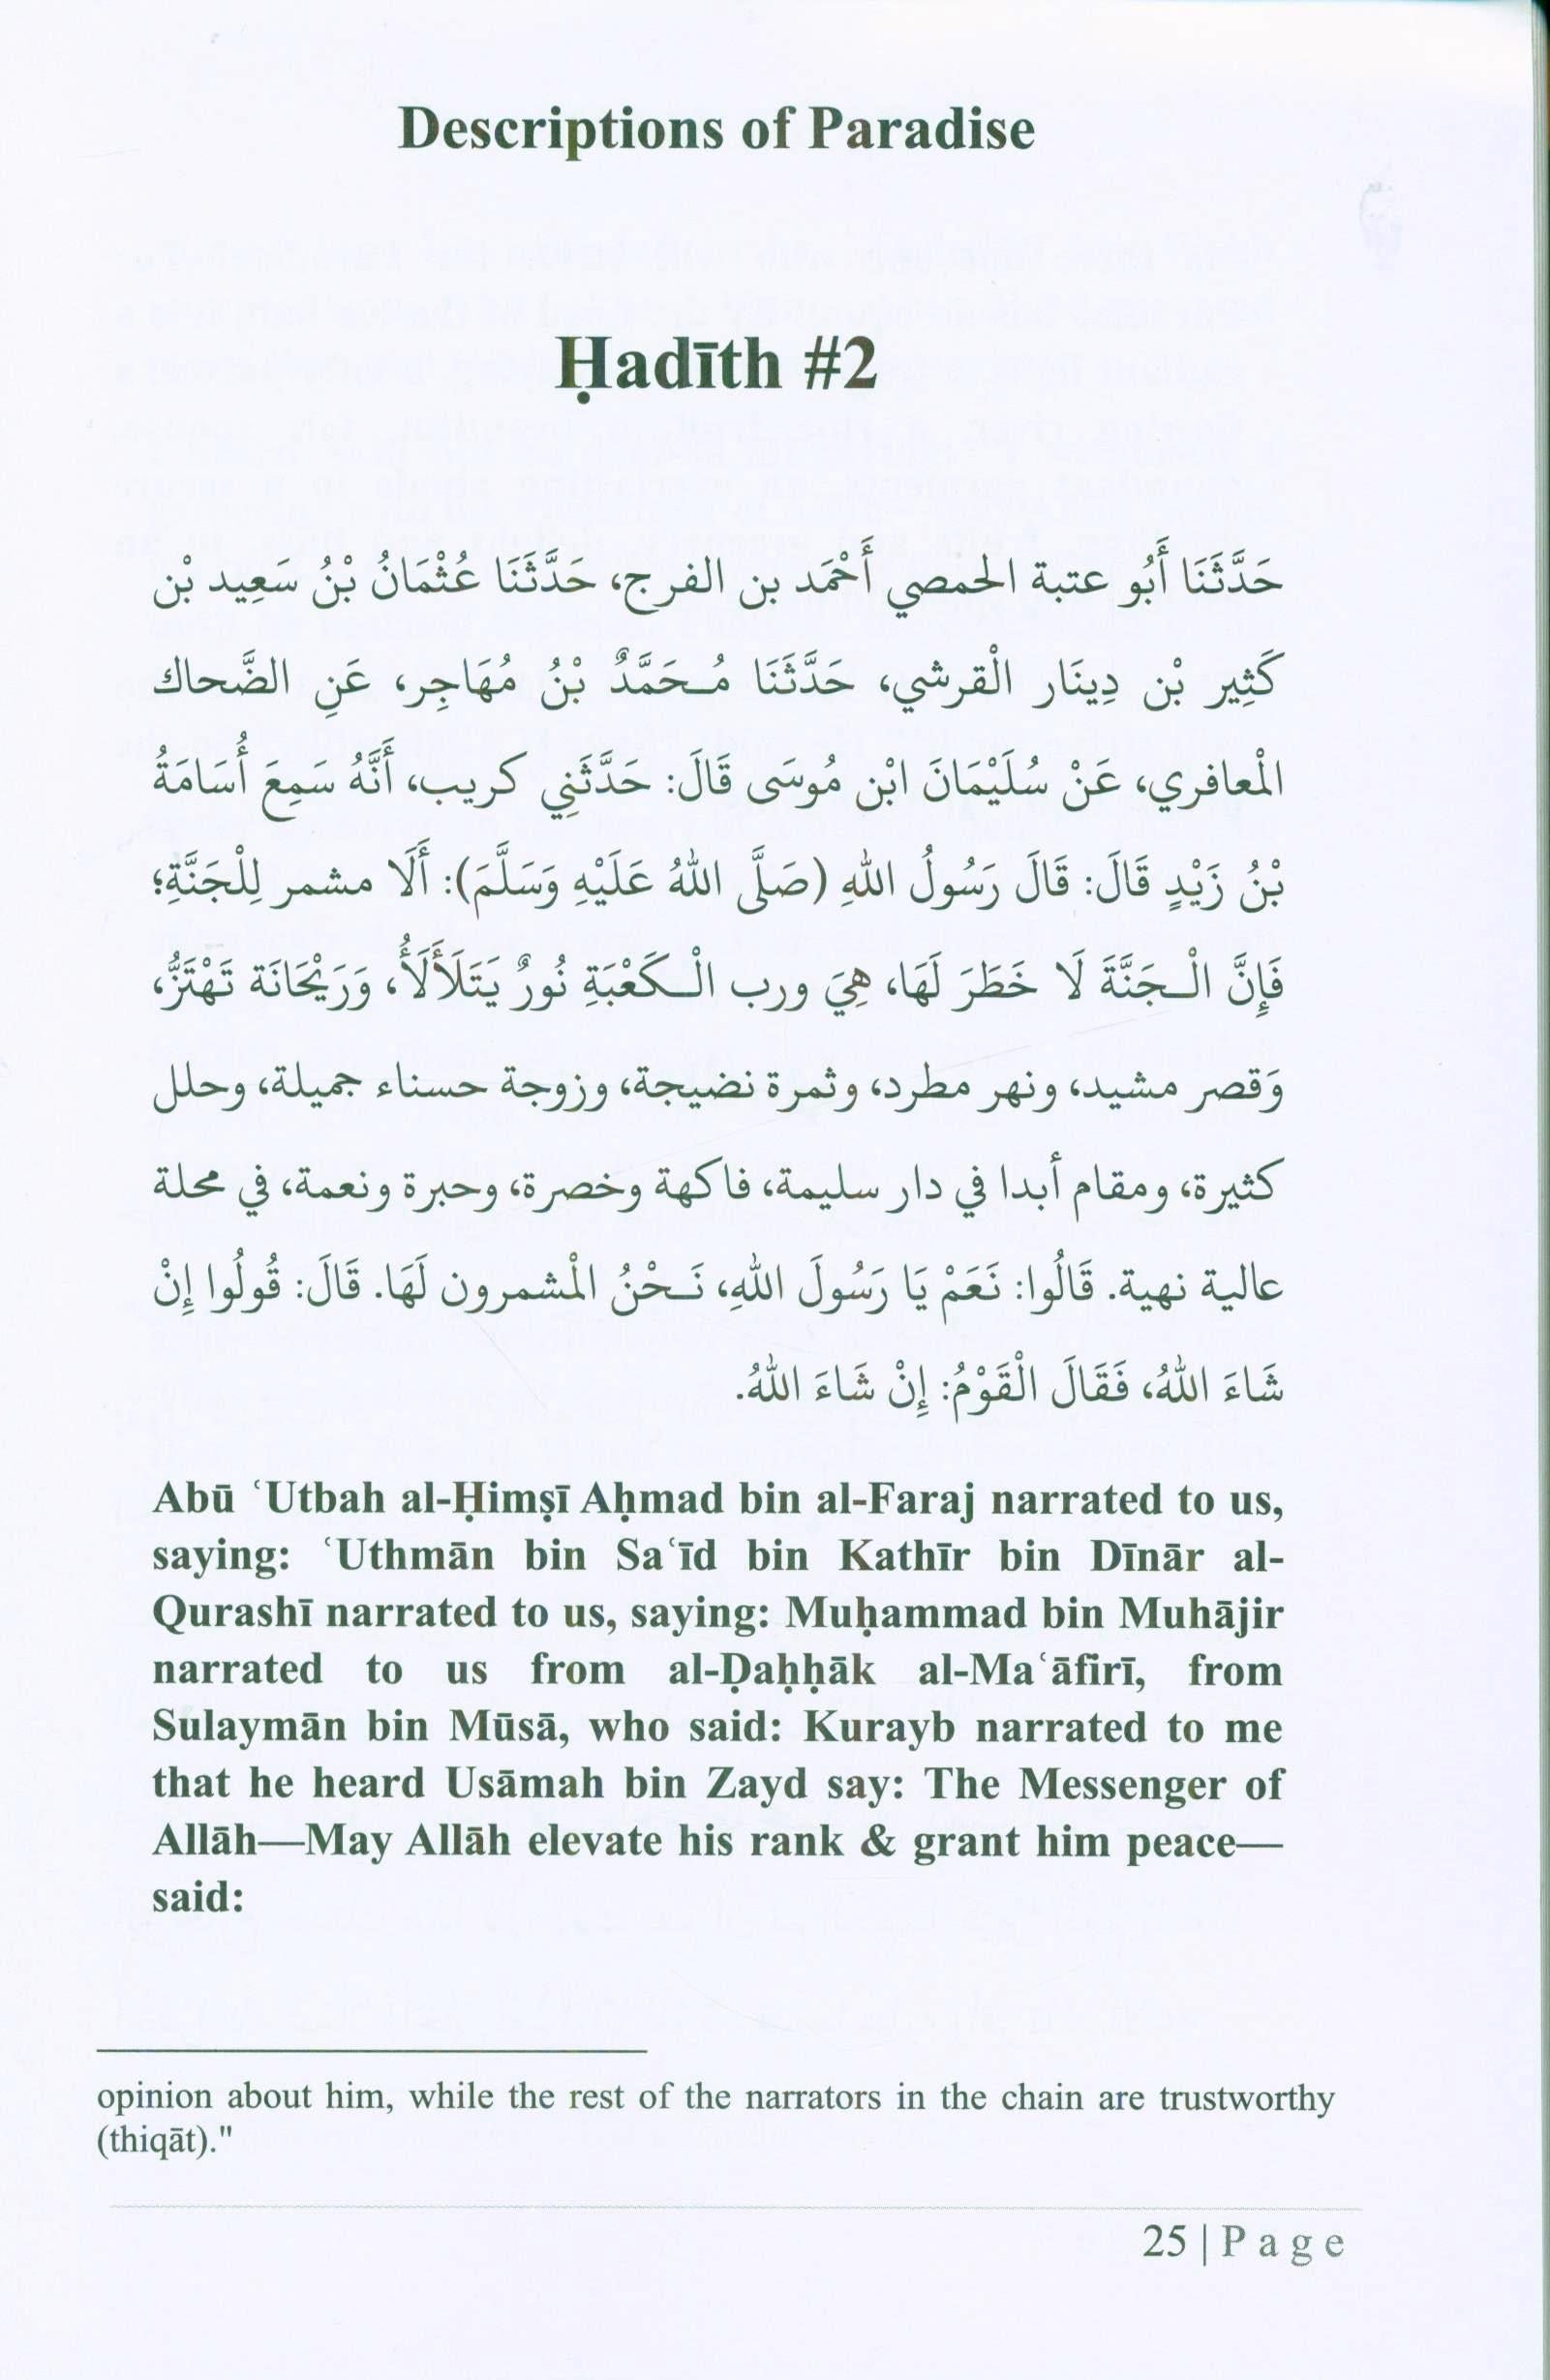 Descriptions of Paradise
Ḥadīth #2
حَدَّثَنَا أَبُو عتبة الحمصي أَحْمَد بن الفرج، حَدَّثَنَا عُثْمَانُ بْنُ سَعِيد بْن
كَثِير بْن دِينَار الْقرشي، حَدَّثَنَا مُـحَمَّدٌ بْنُ مُهَاجِر، عَنِ الضَّحاك
الْمعافري، عَنْ سُلَيْمَانَ ابْن مُوسَى قَالَ: حَدَّثَنِي كريب، أَنَّهُ سَمِعَ أُسَامَةُ
بْنُ زَيْدٍ قَالَ: قَالَ رَسُولُ اللهِ (صَلَّى اللهُ عَلَيْهِ وَسَلَّمَ): أَلَا مشمر لِلْجَنَّةِ؛
فَإِنَّ الْـجَنَّةَ لَا خَطَرَ لَهَا، هِيَ ورب الْـكَعْبَةِ نُورٌ يَتَلَأْلَأُ، وَرَيْحَانَة تَهْتَزُّ،
وَقصر مشيد، ونهر مطرد، وثمرة نضيجة، وزوجة حسناء جميلة، وحلل
كثيرة، ومقام أبدا في دار سليمة، فاكهة وخصرة، وحبرة ونعمة، في محلة
عالية نهية. قَالُوا: نَعَمْ يَا رَسُولَ اللهِ، نَـحْنُ الْمشمرون لَهَا. قَالَ: قُولُوا إِنْ
شَاءَ اللهُ، فَقَالَ الْقَوْمُ: إِنْ شَاءَ اللهُ.
Abū ʿUtbah al-Ḥimṣī Aḥmad bin al-Faraj narrated to us,
saying: ʿUthmān bin Saʿīd bin Kathīr bin Dīnār al-
Qurashī narrated to us, saying: Muḥammad bin Muhājir
narrated to us from al-Ḍaḥḥāk al-Maʿāfirī, from
Sulaymān bin Mūsā, who said: Kurayb narrated to me
that he heard Usāmah bin Zayd say: The Messenger of
Allāh—May Allāh elevate his rank & grant him peace—
said:
opinion about him, while the rest of the narrators in the chain are trustworthy
(thiqāt)."
25 | P a g e